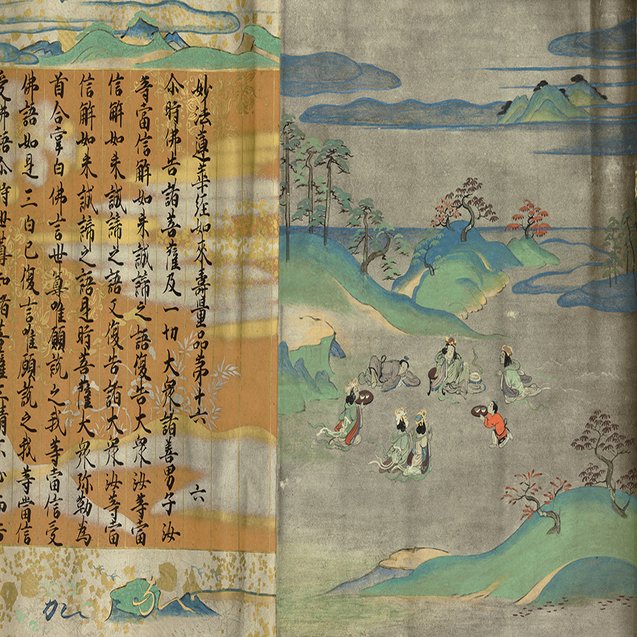 妙法蓮華經如來壽量品第十六 六
尒時佛告諸菩薩及一切大衆諸善男子汝
等當信解如來誠諦之語復告大衆汝等當
信解如來誠諦之語又復告諸大衆汝等當
信解如來誠諦之語是時菩薩大衆弥勒為
首合掌白佛言世尊唯願說之我等當信受
佛語如是三白已復言唯願說之我等當信
受佛語尒時世尊知諸菩薩三請不止而告